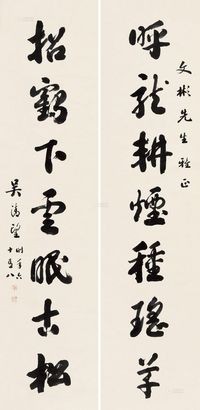 文彬先生雅正
呼龍耕煙種瑤草
招鶴下雲眠古松
吳 望時年六
十有八